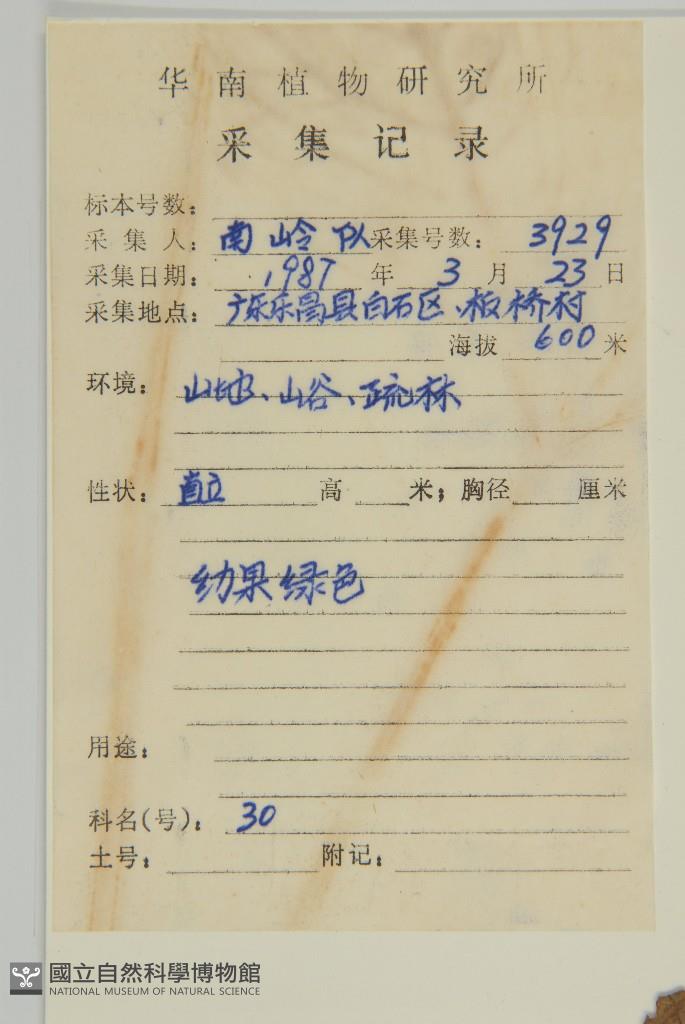 华南植物研究所
采集记录
标本号数：
采集人：南岭队 采集号数：3929
采集日期：1987年3月23日
采集地点：广东乐昌县白石区、板桥村
海拔 600 米
环境：山地、山谷、疏林
性状：直立 高 米；胸径 厘米
幼果绿色
用途：
科名(号)：30
土号： 附记：
國立自然科學博物館
NATIONAL MUSEUM OF NATURAL SCIENCE